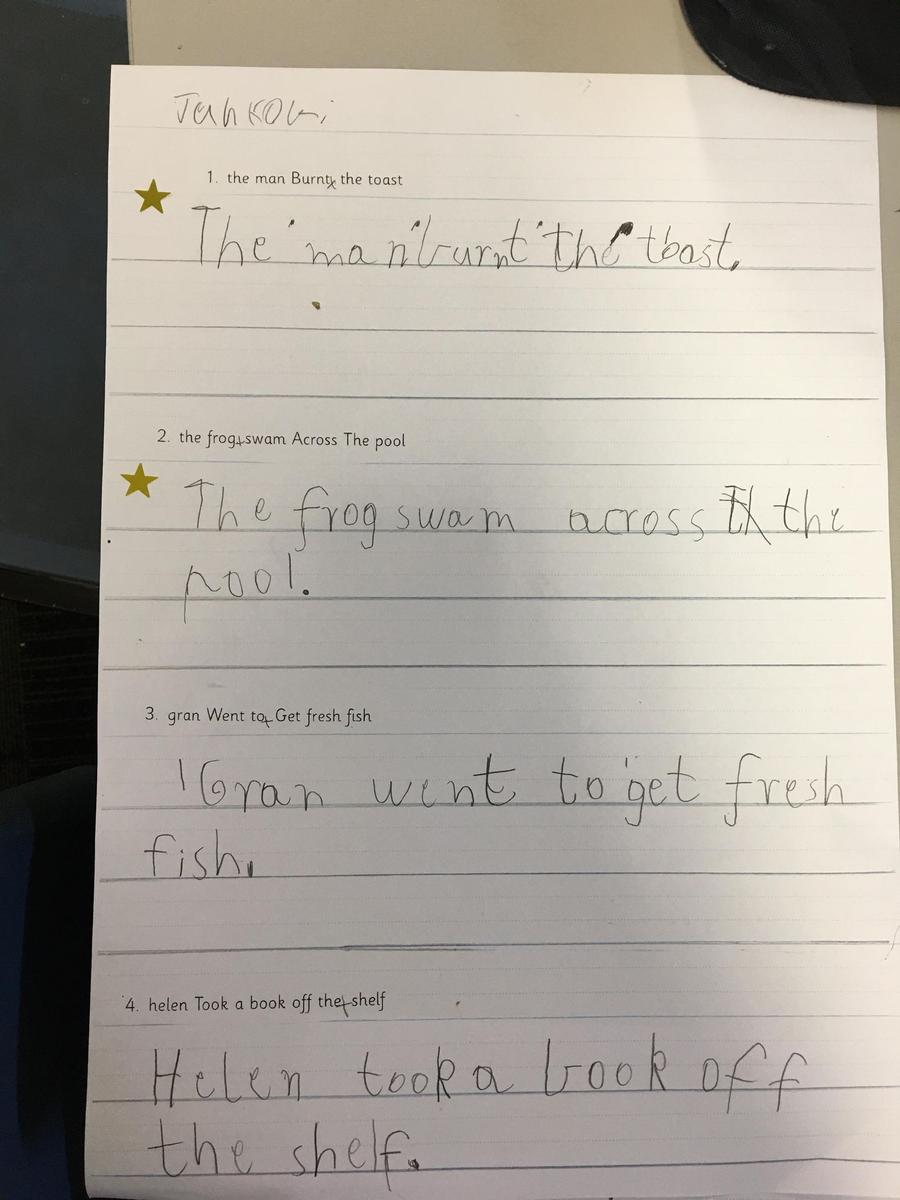 1. the man Burnt the toast
The man burnt the toast.
2. the frog swam Across The pool
The frog swam across the
pool.
3. gran Went to Get fresh fish
Gran went to get fresh
fish.
4. helen Took a book off the shelf
Helen took a book off
the shelf.